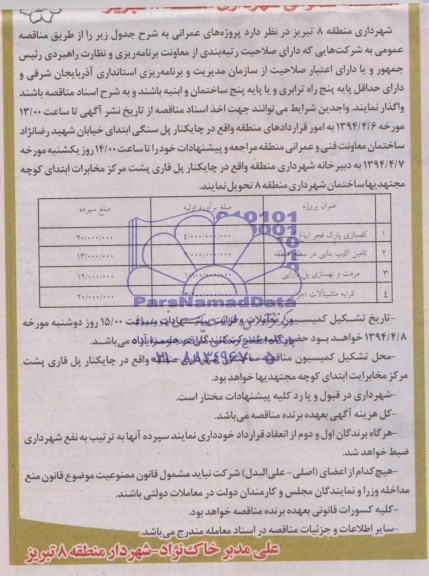 شهرداری منطقه ۸ تبریز در نظر دارد پروژه‌های عمرانی به شرح جدول زیر را از طریق مناقصه
عمومی به شرکت‌هایی که دارای صلاحیت رتبه‌بندی از معاونت برنامه‌ریزی و نظارت راهبردی رئیس
جمهور و یا دارای اعتبار صلاحیت از سازمان مدیریت و برنامه‌ریزی استانداری آذربایجان شرقی و
دارای حداقل پایه پنج راه ترابری و یا پایه پنج ساختمان و ابنیه باشند و به شرح اسناد مناقصه باشند
واگذار نمایند. واجدین شرایط می‌توانند جهت اخذ اسناد مناقصه از تاریخ نشر آگهی تا ساعت ۱۳/۰۰
مورخه ۱۳۹۴/۴/۶ به امور قراردادهای منطقه واقع در چایکنار پل سنگی ابتدای خیابان شهید رضانژاد
ساختمان معاونت فنی و عمرانی منطقه مراجعه و پیشنهادات خود را تا ساعت ۱۴/۰۰ روز یکشنبه مورخه
۱۳۹۴/۴/۷ به دبیرخانه شهرداری منطقه واقع در چایکنار پل قاری پشت مرکز مخابرات ابتدای کوچه
مجتهدیها ساختمان شهرداری منطقه ۸ تحویل نمایند.
عنوان پروژه مبلغ برآورد اولیه مبلغ سپرده
۱ کفسازی پارک فجر ۴/۰۰۰/۰۰۰/۰۰۰ ۴۰/۰۰۰/۰۰۰
۲ تامین اکیپ بنایی در سطح منطقه ۱۳/۰۰۰/۰۰۰
۳ مرمت و بهسازی پل ۱۴/۰۰۰/۰۰۰
۴ کرایه ماشین‌آلات ۲۰/۰۰۰/۰۰۰
ParsNamadData
۰۲۱-۸۸۳۴۹۶۷۰-۵
-تاریخ تشکیل کمیسیون معاملات و قرائت پیشنهادات ساعت ۱۵/۰۰ روز دوشنبه مورخه
۱۳۹۴/۴/۸ خواهد بود حضور کلیه شرکت‌کنندگان در جلسه آزاد می‌باشد.
-محل تشکیل کمیسیون مناقصه ساختمان شهرداری منطقه واقع در چایکنار پل قاری پشت
مرکز مخابرایت ابتدای کوچه مجتهدیها خواهد بود.
-شهرداری در قبول و یا رد کلیه پیشنهادات مختار است.
-کل هزینه آگهی بعهده برنده مناقصه می‌باشد.
-هرگاه برندگان اول و دوم از انعقاد قرارداد خودداری نمایند سپرده آنها به ترتیب به نفع شهرداری
ضبط خواهد شد.
-هیچکدام از اعضای (اصلی - علی‌البدل) شرکت نباید مشمول قانون ممنوعیت موضوع قانون منع
مداخله وزرا و نمایندگان مجلس و کارمندان دولت در معاملات دولتی باشند.
-کلیه کسورات قانونی بعهده برنده مناقصه خواهد بود.
-سایر اطلاعات و جزئیات مناقصه در اسناد معامله مندرج می‌باشد.
علی مدبر خاک‌نژاد-شهردار منطقه ۸ تبریز